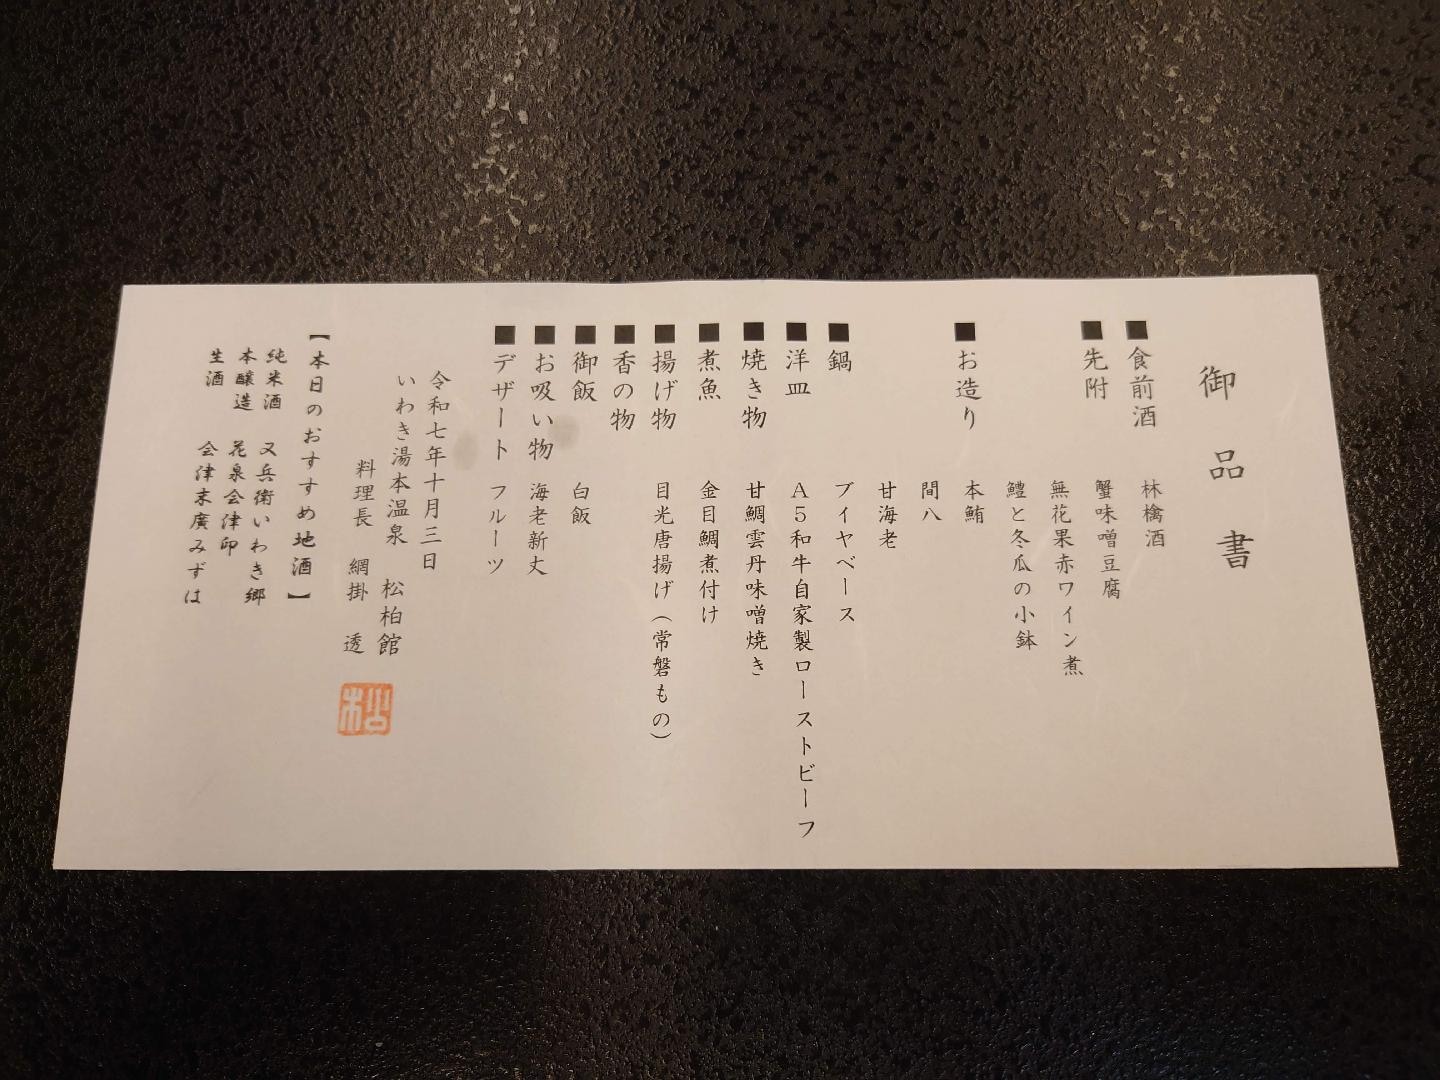 御品書
■食前酒 林檎酒
■先附 蟹味噌豆腐
無花果赤ワイン煮
鱧と冬瓜の小鉢
■お造り 本鮪
間八
甘海老
■鍋 ブイヤベース
■洋皿 A5和牛自家製ローストビーフ
■焼き物 甘鯛雲丹味噌焼き
■煮魚 金目鯛煮付け
■揚げ物 目光唐揚げ(常磐もの)
■香の物
■御飯 白飯
■お吸い物 海老新丈
■デザート フルーツ
令和七年十月三日
いわき湯本温泉 松柏館
料理長 網掛 透
【本日のおすすめ地酒】
純米酒 又兵衛いわき郷
本醸造 花泉会津印
生酒 会津末廣みずは